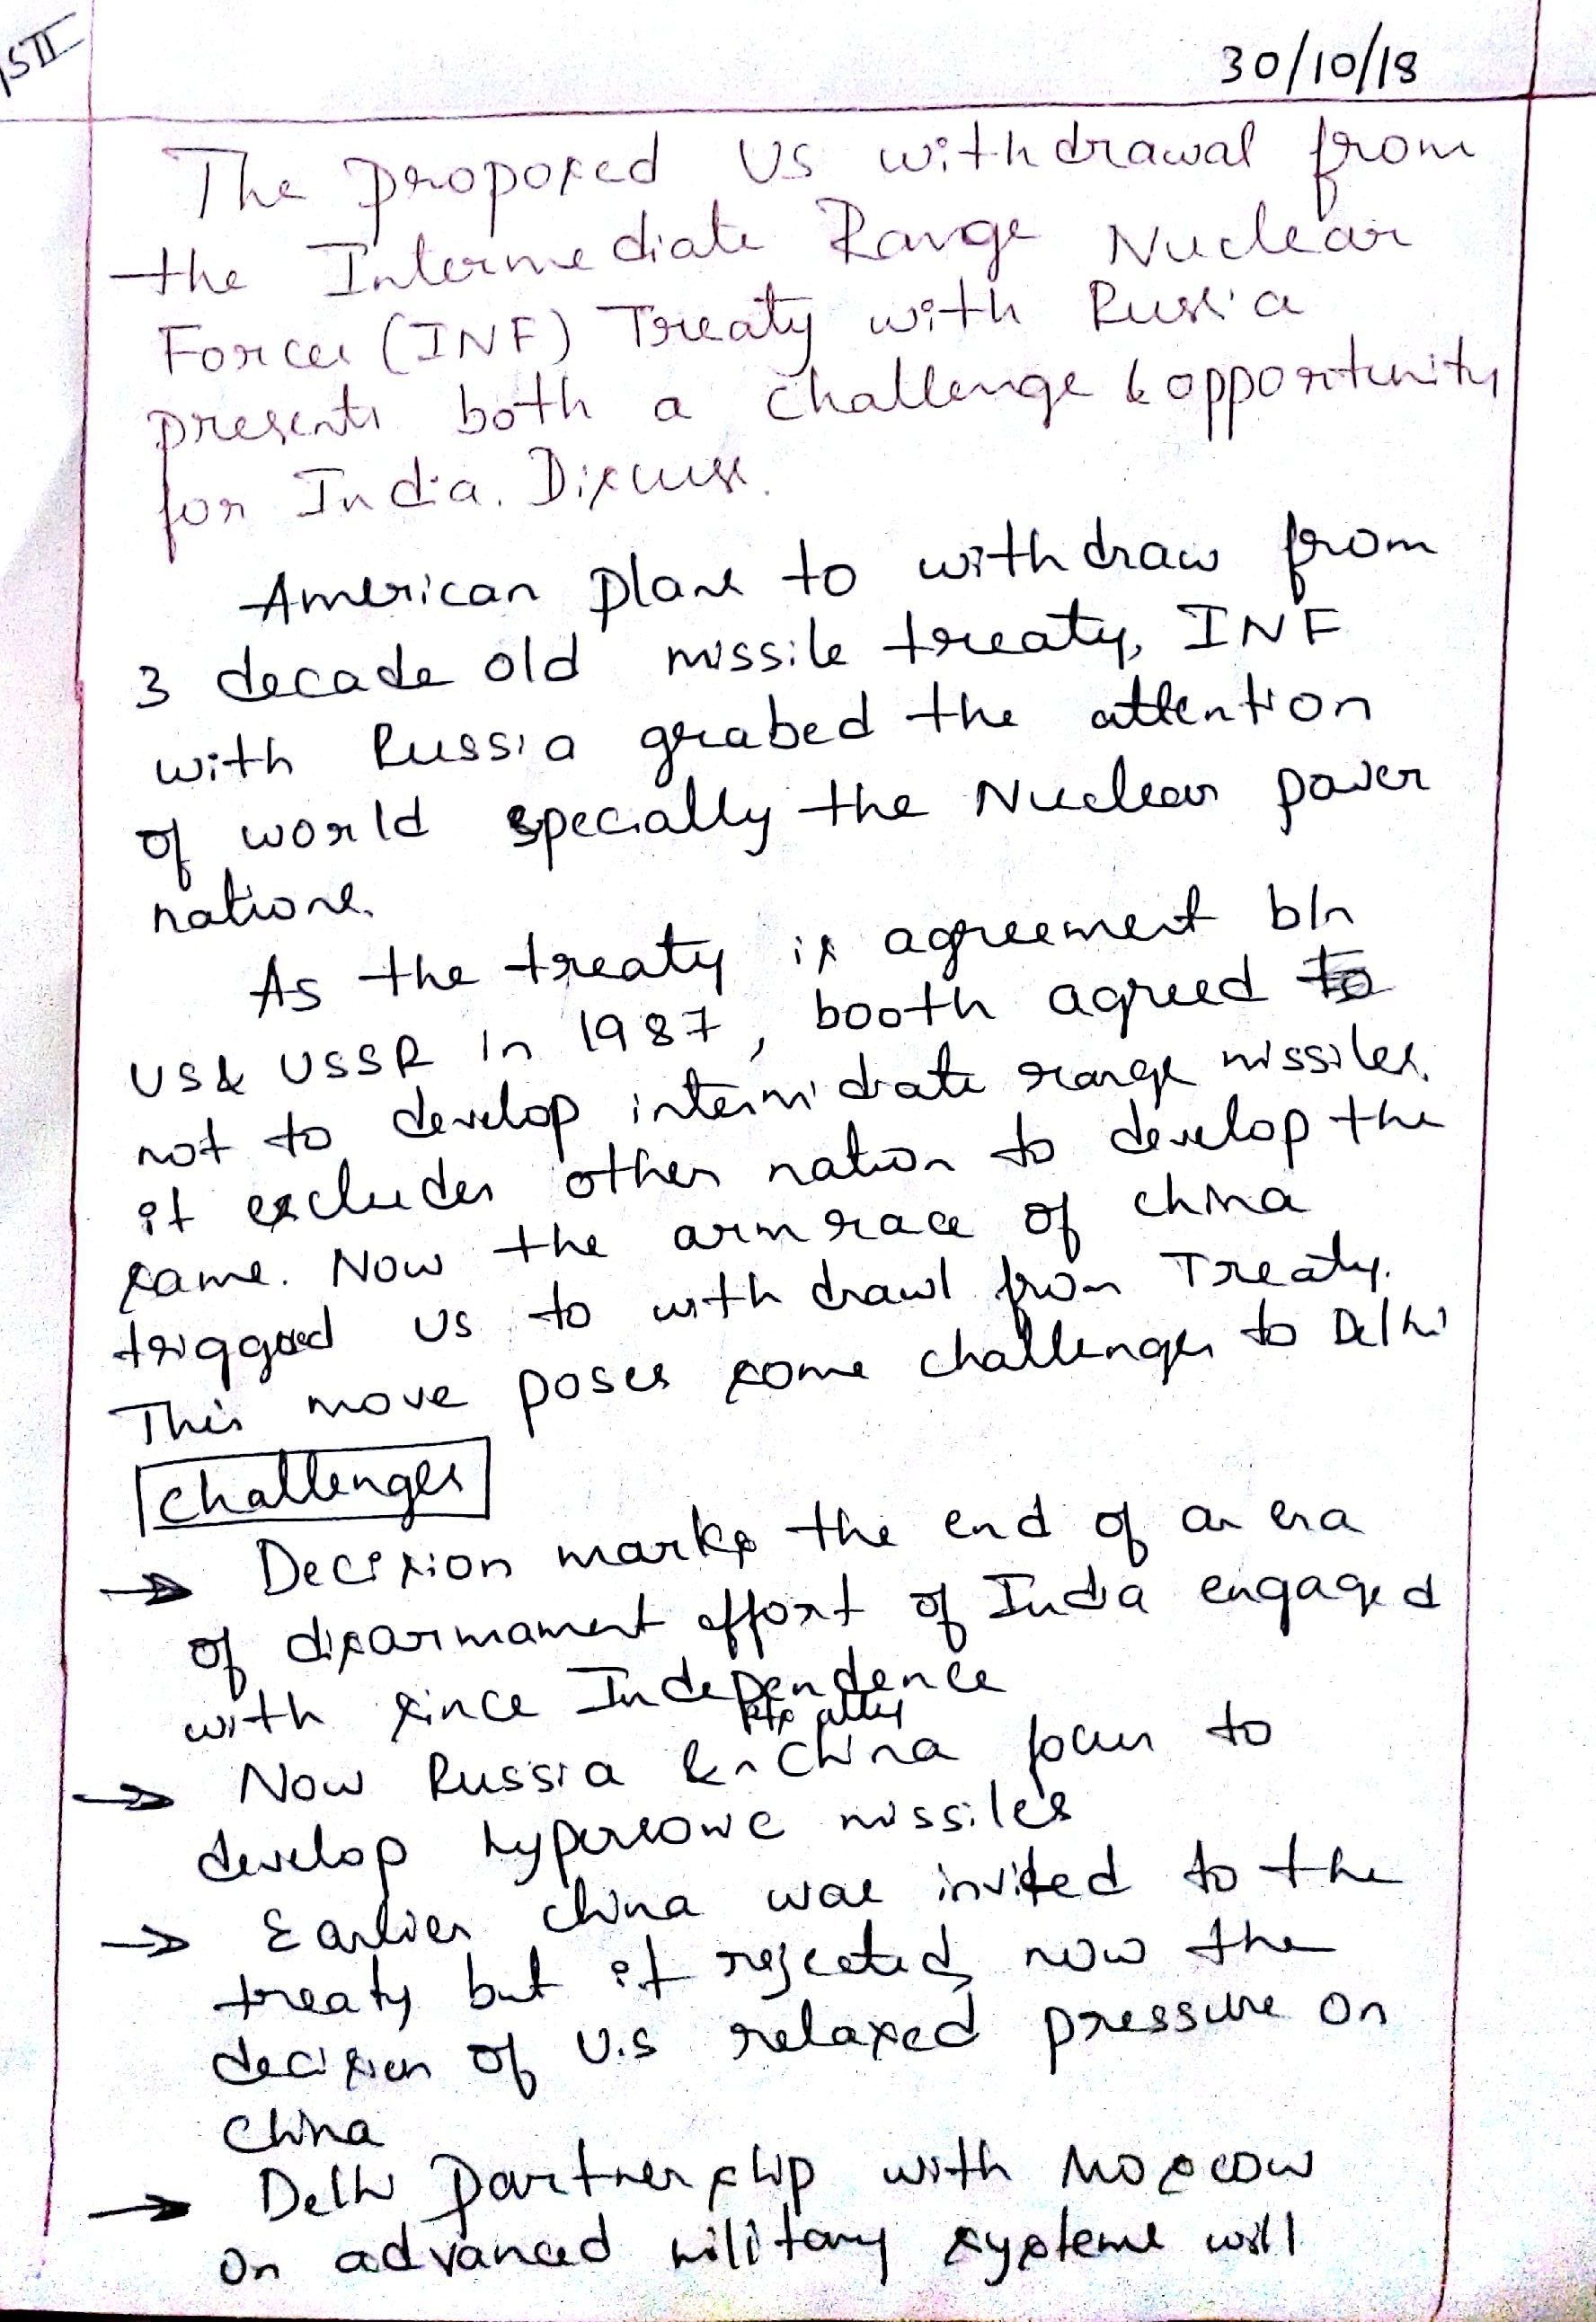 30/10/18
The proposed US withdrawal from
the Intermediate Range Nuclear
Forces (INF) Treaty with Russia
presents both a challenge & opportunity
for India. Discuss.
American plans to withdraw from
3 decade old missile treaty, INF
with Russia grabed the attention
of world specially the Nuclear power
nations.
As the treaty is agreement b/n
US & USSR in 1987, booth agreed to
not to develop intermidiate range missiles.
it excludes other nation to develop the
same. Now the arm race of china
triggred US to withdrawl from Treaty.
This move poses some challenges to Delhi
Challenges
→ Decision marks the end of an era
of disarmament effort of India engaged
with since Independence
→ Now Russia & China focus to
develop hypersonic missiles
→ Earlier china was invited to the
treaty but it rejected, now the
decision of U.S relaxed pressure on
China
→ Delhi partnership with Moscow
on advanced military systems will